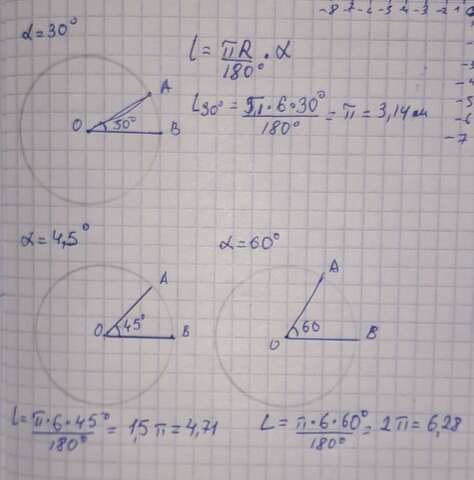 α=30°
-8 -7 -6 -5 -4 -3 -2 -1
-4
-5
-6
-7
l = πR/180° · α
A
O 30° B
L30° = π·6·30°/180° = π = 3,14 см
α=4,5°
α=60°
A
O 45° B
A
O 60 B
L = π·6·45°/180° = 1,5π = 4,71
L = π·6·60°/180° = 2π = 6,28